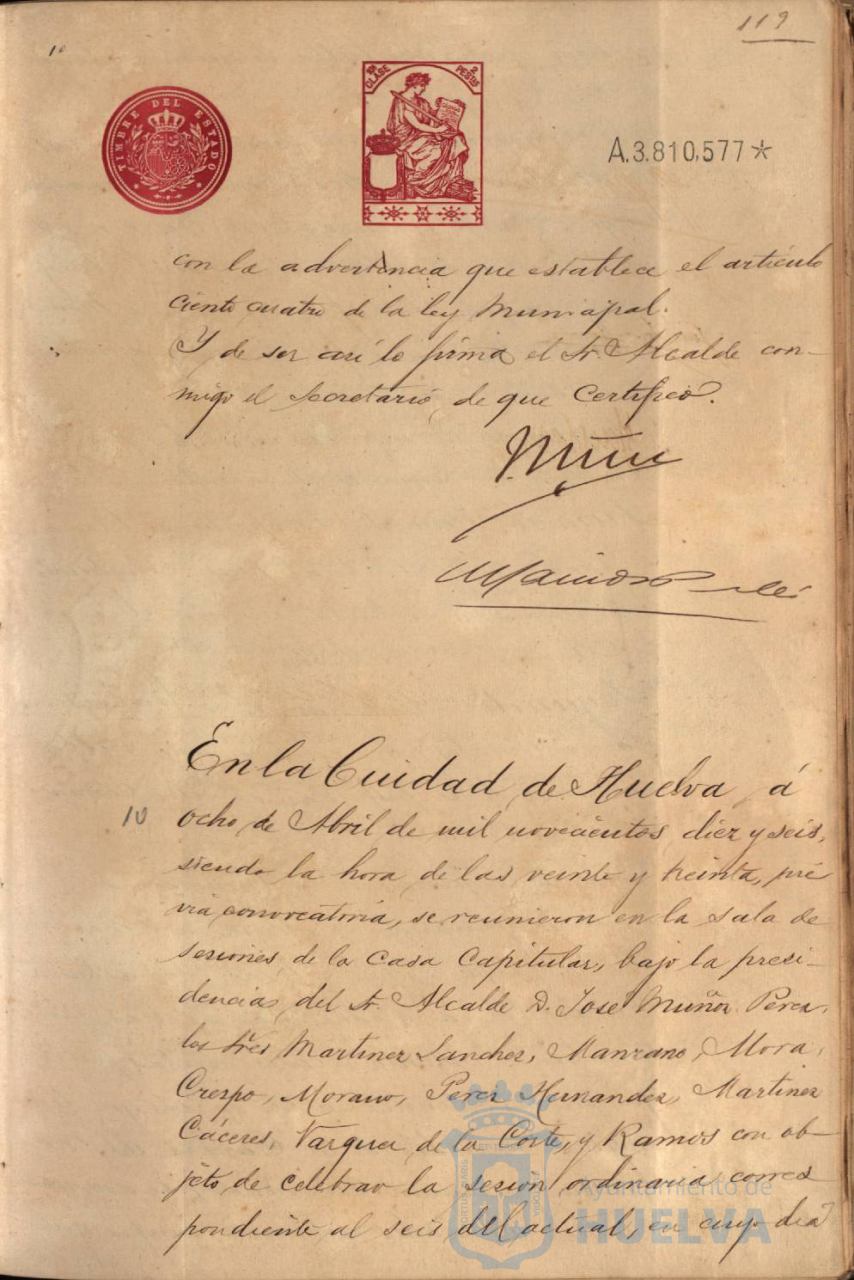 119
10
TIMBRE DEL ESTADO
EN CLASE 2 PESTAS
A.3.810,577*
con la advertencia que establece el artículo
ciento cuatro de la ley Municipal.
Y de ser así lo firma el Sr. Alcalde con-
migo el Secretario, de que Certifico.
En la Ciudad de Huelva á
10
ocho de Abril de mil novecientos diez y seis,
siendo la hora de las veinte y treinta, pré
via convocatoria, se reunieron en la sala de
sesiones de la Casa Capitular, bajo la presi-
dencia del Sr. Alcalde D. José Muñoz Perez,
los Sres Martinez Sanchez, Manzano, Mora,
Crespo, Morano, Perez Hernandez, Martinez
Cáceres, Vazquez de la Corte, y Ramos con ob-
jeto de celebrar la sesion ordinaria corres
pondiente al seis del actual, en cuyo dia
Ayuntamiento de
HUELVA